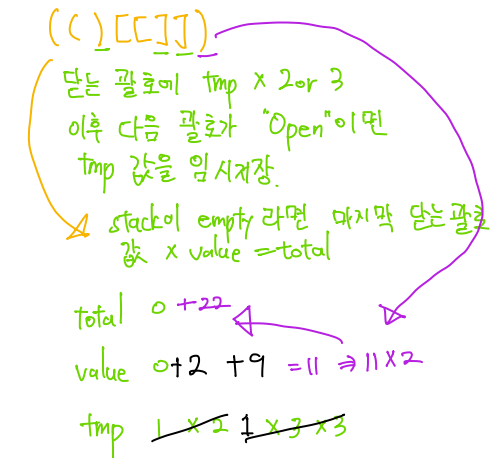 (()[[]])
닫는 괄호에 tmp × 2 or 3
이후 다음 괄호가 "Open"이면
tmp 값을 임시저장.
stack이 empty 라면 마지막 닫는괄호
값 × value = total
total 0 +22
value 0+2 +9 =11 ⇒ 11×2
tmp 1 × 2 1 × 3 × 3